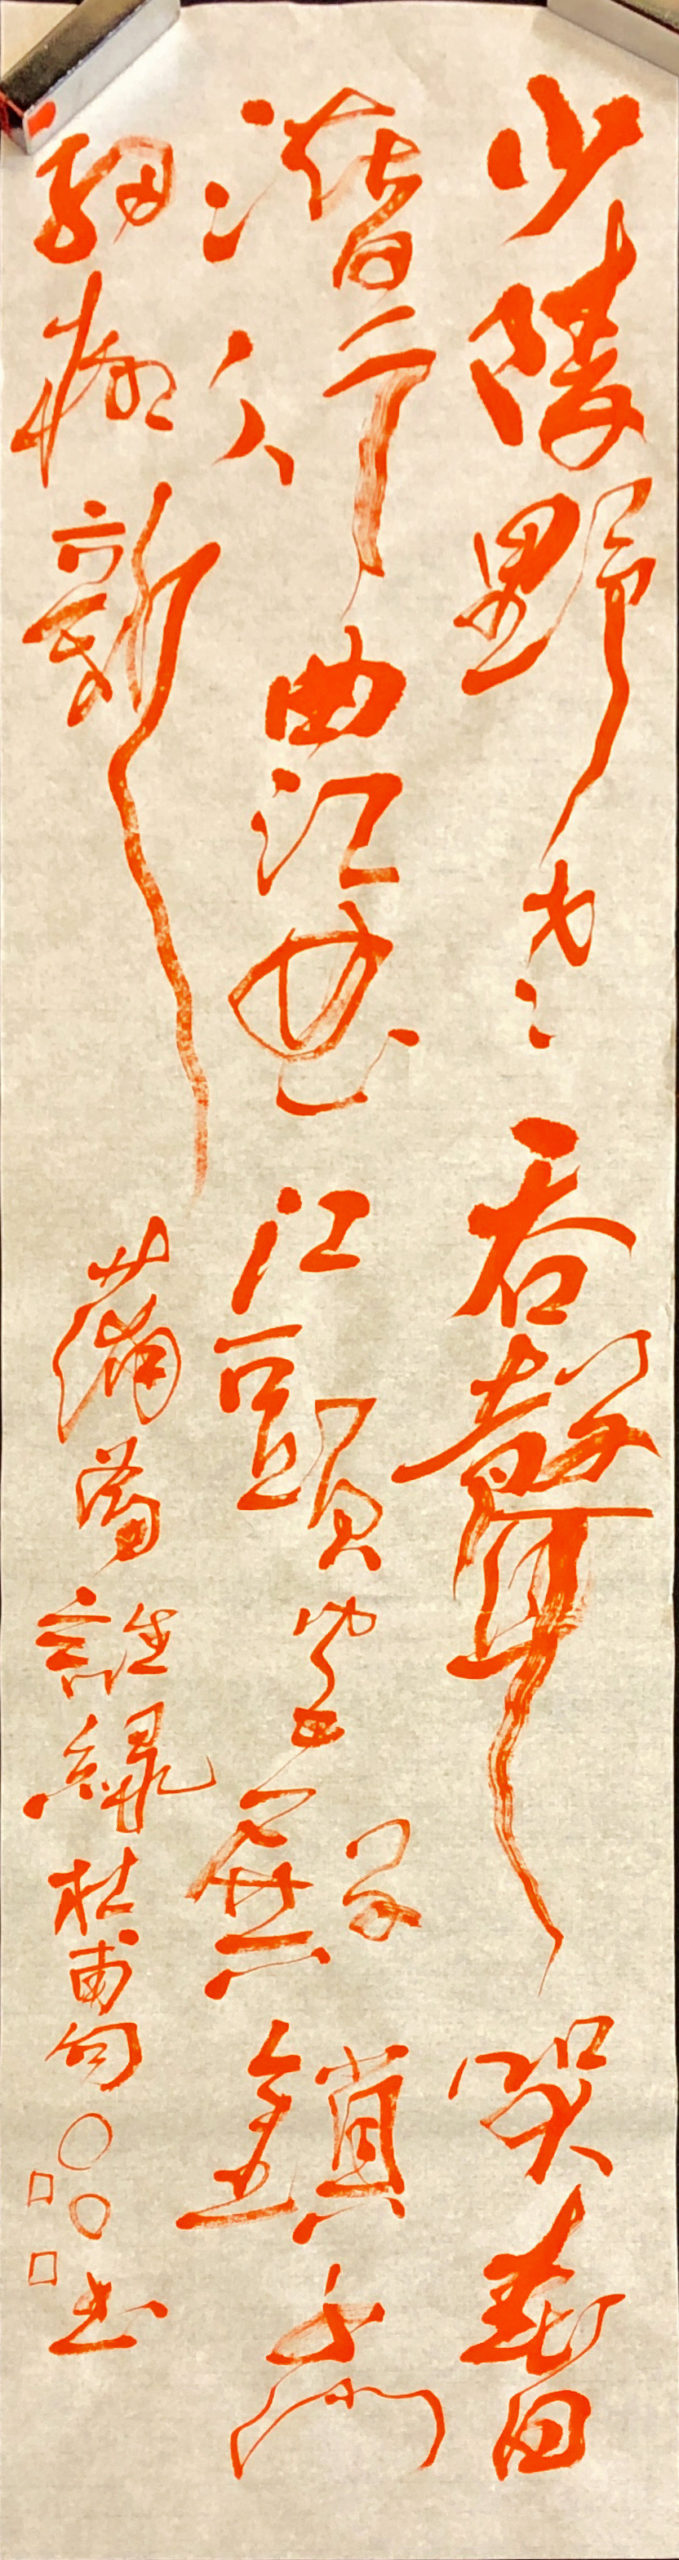 少陵野老吞聲哭春日
潛行曲江曲江頭宮殿鎖千門
細柳新蒲為誰綠杜甫句○○書